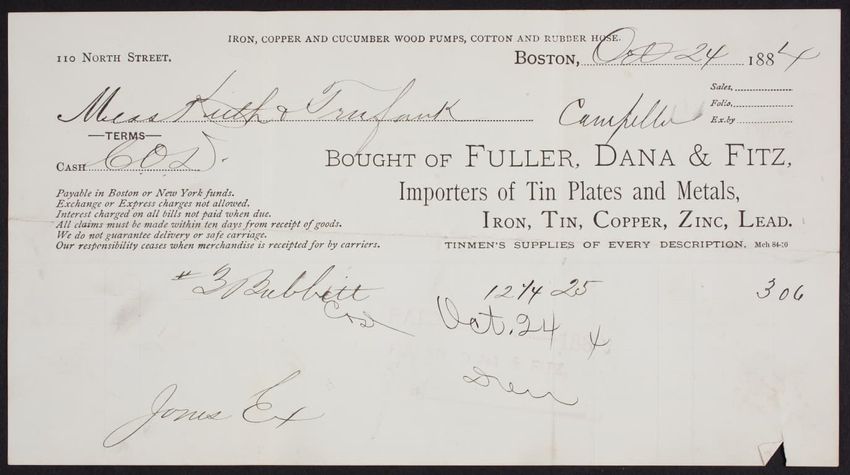 IRON, COPPER AND CUCUMBER WOOD PUMPS, COTTON AND RUBBER HOSE.
110 NORTH STREET.
BOSTON, Oct 24 1884
Sales,
Folio,
Ex. by
Mess Keith &
Campello
—TERMS—
CASH COD.
BOUGHT OF FULLER, DANA & FITZ,
Importers of Tin Plates and Metals,
IRON, TIN, COPPER, ZINC, LEAD.
TINMEN'S SUPPLIES OF EVERY DESCRIPTION. Mch 84-10
Payable in Boston or New York funds.
Exchange or Express charges not allowed.
Interest charged on all bills not paid when due.
All claims must be made within ten days from receipt of goods.
We do not guarantee delivery or safe carriage.
Our responsibility ceases when merchandise is receipted for by carriers.
# 3 Babbitt 12 1/4 25 3 06
Oct. 24 4
Jones Ex